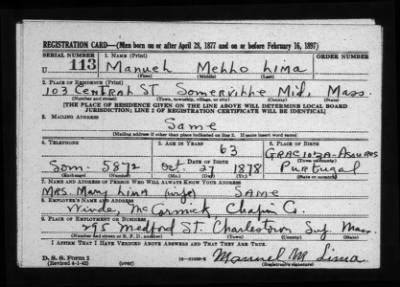 REGISTRATION CARD—(Men born on or after April 28, 1877 and on or before February 16, 1897)
SERIAL NUMBER 1. NAME (Print) ORDER NUMBER
U 113 Manuel Mello Lima
(First) (Middle) (Last)
2. PLACE OF RESIDENCE (Print)
103 Central ST Somerville Mid. Mass.
(Number and street) (Town, township, village, or city) (County) (State)
[THE PLACE OF RESIDENCE GIVEN ON THE LINE ABOVE WILL DETERMINE LOCAL BOARD
JURISDICTION; LINE 2 OF REGISTRATION CERTIFICATE WILL BE IDENTICAL]
3. MAILING ADDRESS
Same
[Mailing address if other than place indicated on line 2. If same insert word same]
4. TELEPHONE 5. AGE IN YEARS 6. PLACE OF BIRTH
63 GRACIOZA-
DATE OF BIRTH
Som. 5872 Oct. 27 1878 Purtugal
(Exchange) (Number) (Mo.) (Day) (Yr.) (State or country)
7. NAME AND ADDRESS OF PERSON WHO WILL ALWAYS KNOW YOUR ADDRESS
MRS. Mary Lima (wife) SAME
8. EMPLOYER'S NAME AND ADDRESS
McCormick Chapin Co.
9. PLACE OF EMPLOYMENT OR BUSINESS
295 Medford ST. Charlestown Suf. Mass.
(Number and street or R. F. D. number) (Town) (County) (State)
I AFFIRM THAT I HAVE VERIFIED ABOVE ANSWERS AND THAT THEY ARE TRUE.
D. S. S. Form 1
(Revised 4-1-42) (over) Manuel M Lima
(Registrant's signature)